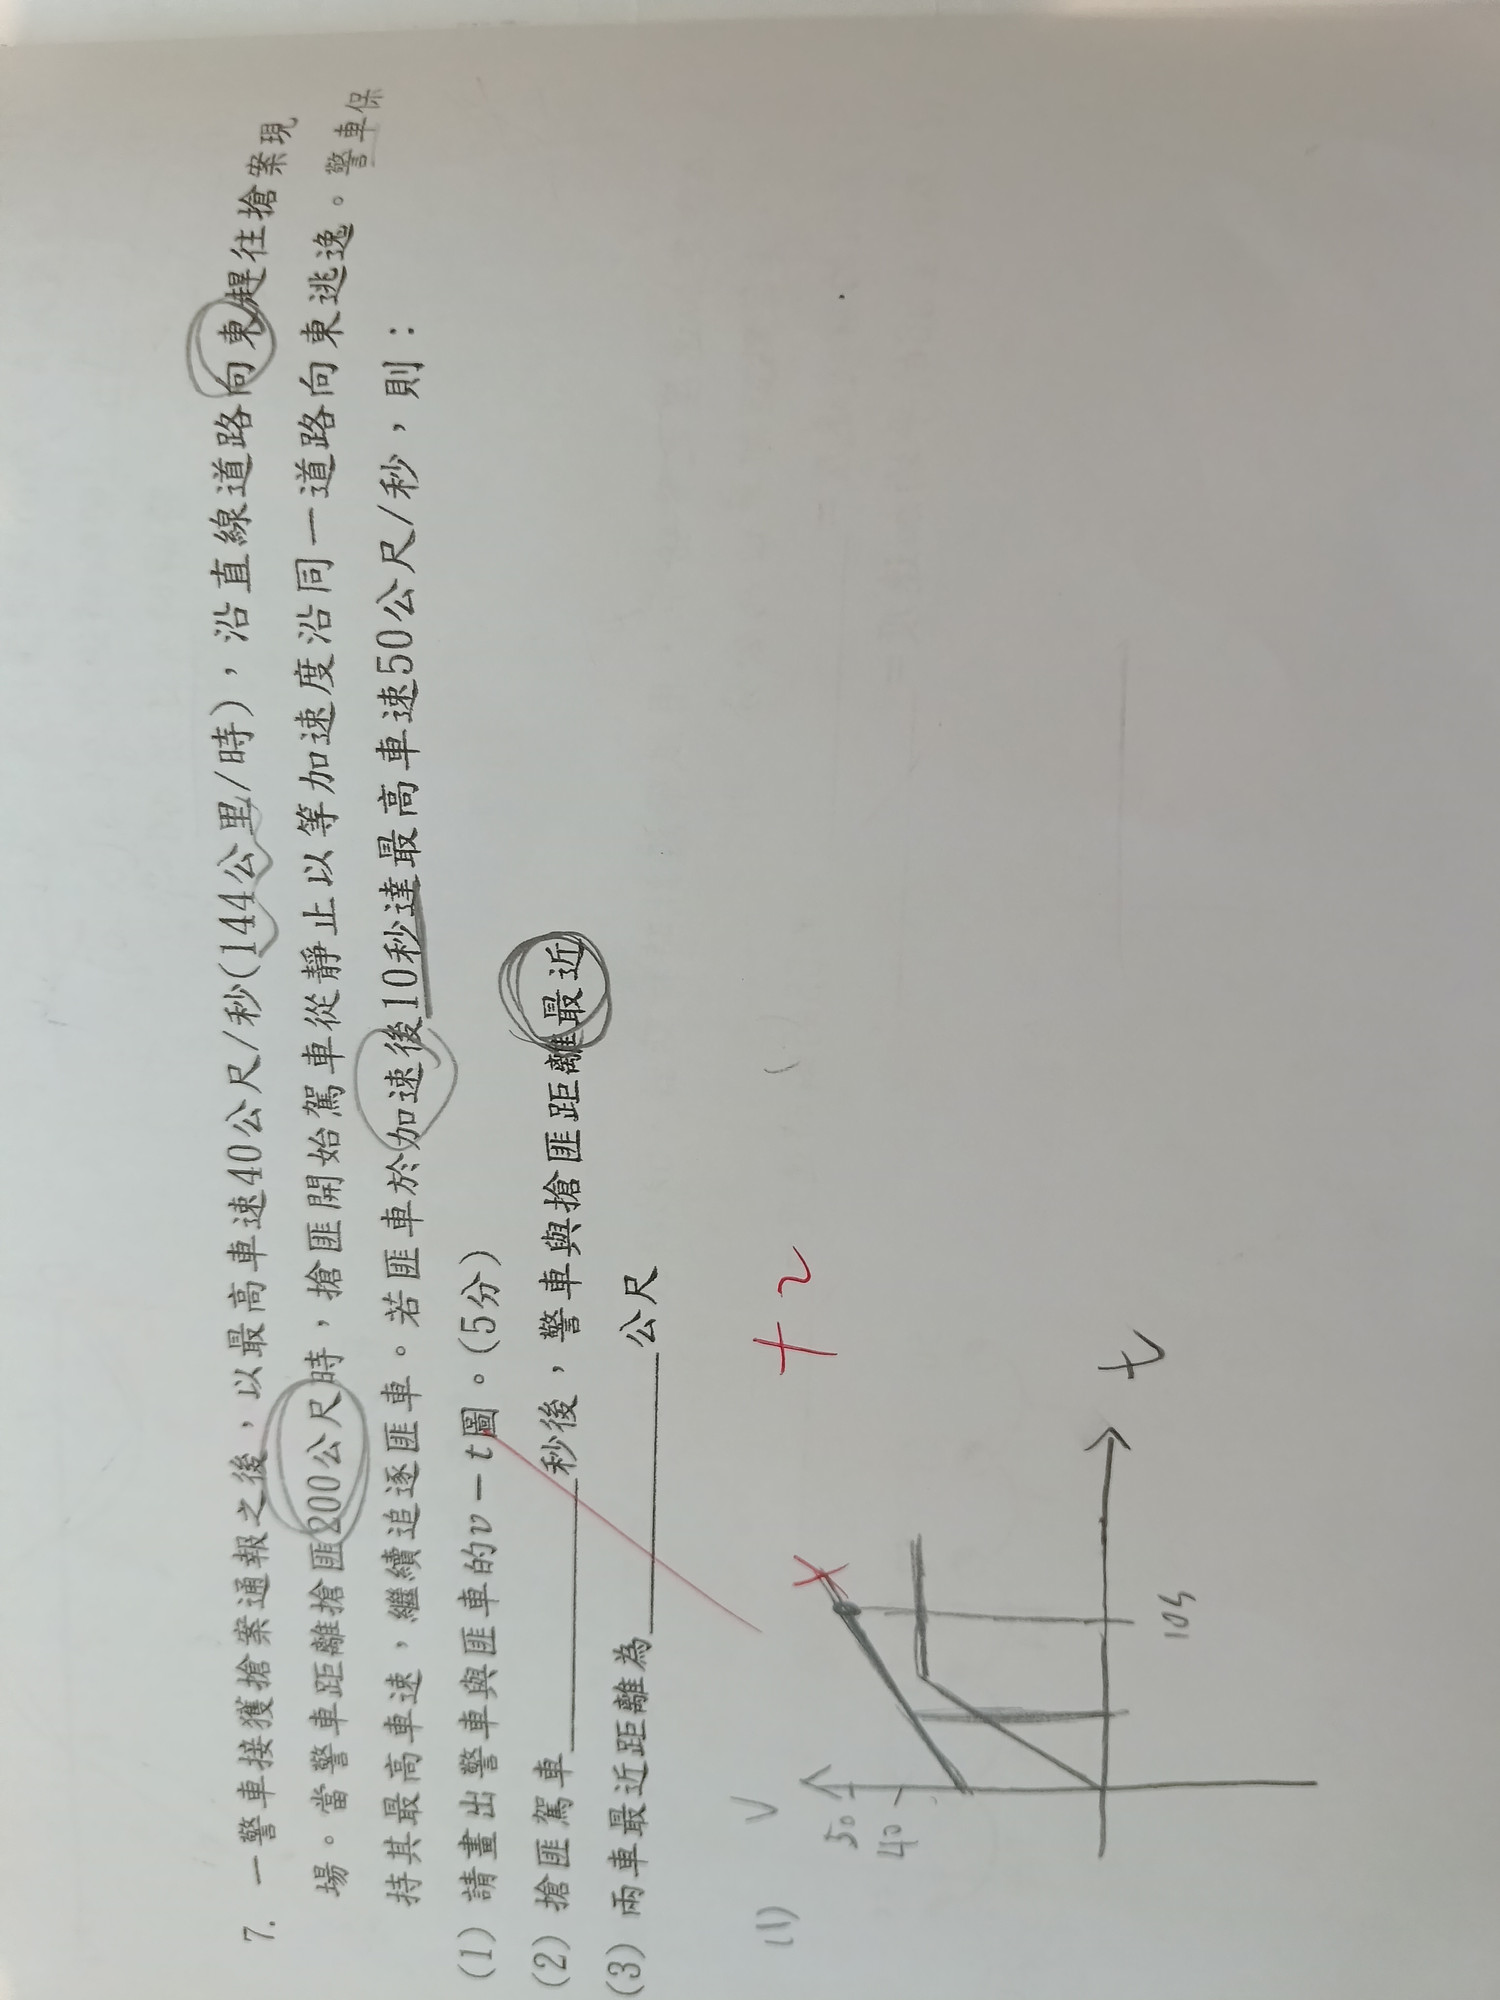 7. 一警車接獲搶案通報之後，以最高車速40公尺/秒(144公里/時)，沿直線道路向東趕往搶案現
場。當警車距離搶匪200公尺時，搶匪開始駕車從靜止以等加速度沿同一道路向東逃逸。警車保
持其最高車速，繼續追逐匪車。若匪車於加速後10秒達最高車速50公尺/秒，則：
(1) 請畫出警車與匪車的v－t圖。(5分)
(2) 搶匪駕車______秒後，警車與搶匪距離最近
(3) 兩車最近距離為______公尺
+2
(1) V
50
40
10s
t